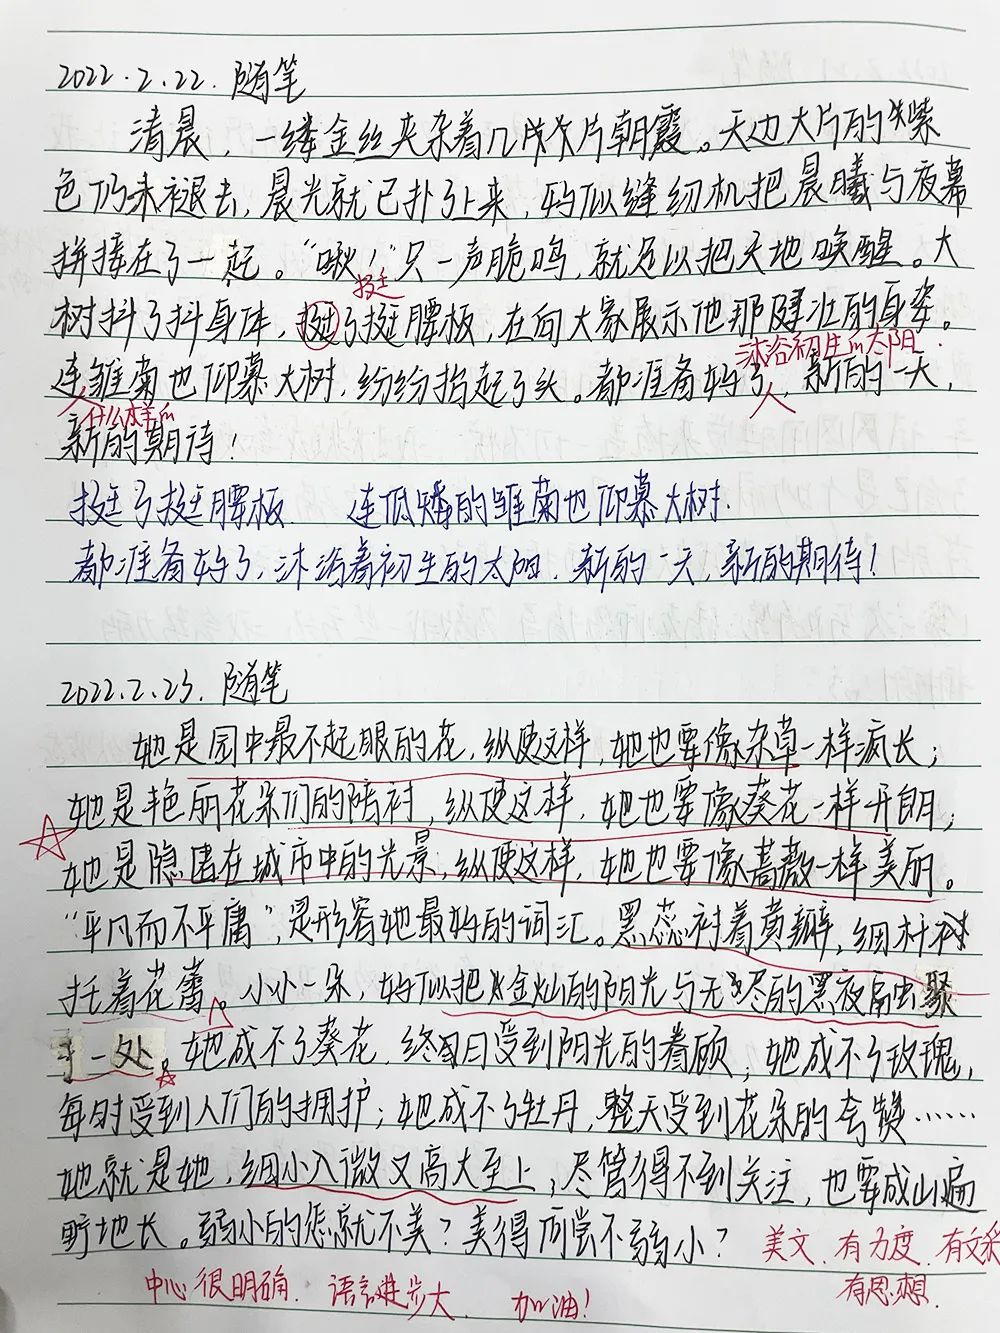 2022.2.22. 随笔
清晨，一缕金丝夹杂着几片朝霞。天边大片的紫
色仍未褪去，晨光就已扑了上来，好似缝纫机把晨曦与夜幕
拼接在了一起。“啾！”只一声脆鸣，就足以把天地唤醒。大
挺
树抖了抖身体，挺了挺腰板，在向大家展示他那健壮的身姿。
沐浴初生的太阳.
连雏菊也仰慕大树，纷纷抬起了头。都准备好了，新的一天，
什么样的
新的期待！
挺了挺腰板. 连低矮的雏菊也仰慕大树.
都准备好了，沐浴着初生的太阳，新的一天，新的期待！
2022.2.23. 随笔
她是园中最不起眼的花，纵使这样，她也要像杂草一样疯长；
她是艳丽花朵们的陪衬，纵使这样，她也要像葵花一样开朗；
她是隐匿在城市中的光景，纵使这样，她也要像蔷薇一样美丽。
“平凡而不平庸”，是形容她最好的词汇。黑蕊衬着黄瓣，细杆衬
托着花蕾。小小一朵，好似把金灿的阳光与无尽的黑夜融聚
于一处。她成不了葵花，终日受到阳光的眷顾；她成不了玫瑰，
每时受到人们的拥护；她成不了牡丹，整天受到花朵的夸赞……
她就是她，细小入微又高大至上；尽管得不到关注，也要成山遍
野地长。弱小的怎就不美？美得何尝不弱小？
美文、有力度、有文采
有思想.
中心很明确. 语言进步大. 加油！